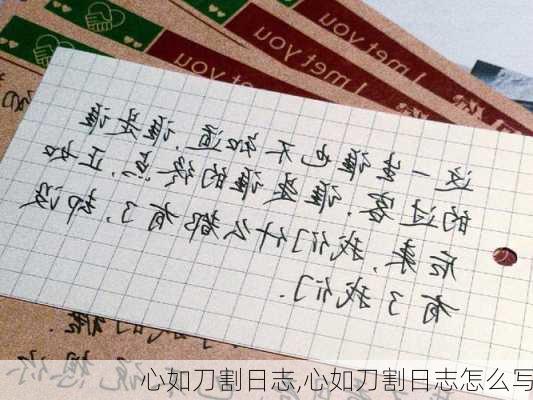 I met you
I met you
I met you
这一世谁也不知道.谁是谁
的过客.谁是谁的终.正如
后来.我们什么都有了.却没
有了我们.
心如刀割日志,心如刀割日志怎么写